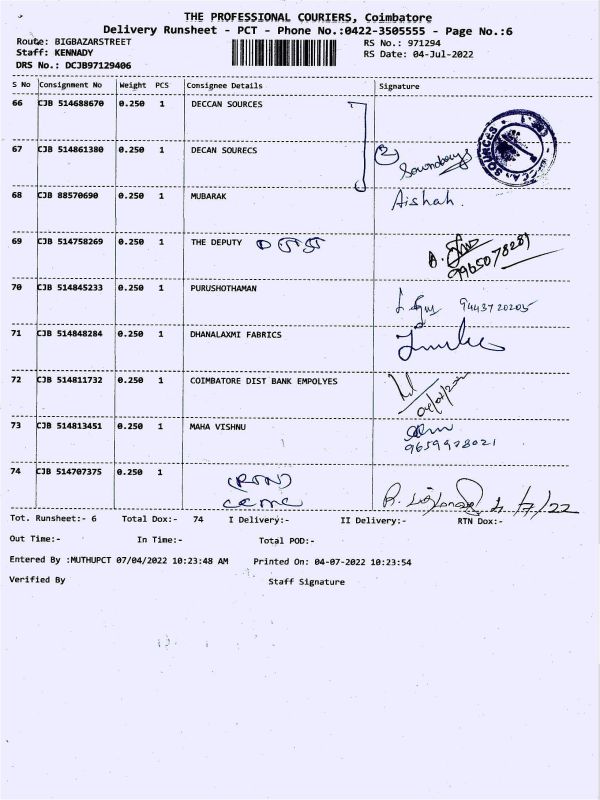 THE PROFESSIONAL COURIERS, Coimbatore
Delivery Runsheet - PCT - Phone No.:0422-3505555 - Page No.:6
Route: BIGBAZARSTREET RS No.: 971294
Staff: KENNADY RS Date: 04-Jul-2022
DRS No.: DCJB97129406
S No Consignment No Weight PCS Consignee Details Signature
66 CJB 514688670 0.250 1 DECCAN SOURCES
67 CJB 514861380 0.250 1 DECAN SOURECS 2
68 CJB 88570690 0.250 1 MUBARAK Aishah.
69 CJB 514758269 0.250 1 THE DEPUTY
9965078281
70 CJB 514845233 0.250 1 PURUSHOTHAMAN 9443720205
71 CJB 514848284 0.250 1 DHANALAXMI FABRICS
72 CJB 514811732 0.250 1 COIMBATORE DIST BANK EMPOLYES
73 CJB 514813451 0.250 1 MAHA VISHNU
9659928021
74 CJB 514707375 0.250 1 (RTN)
Tot. Runsheet:- 6 Total Dox:- 74 I Delivery:- II Delivery:- RTN Dox:-
Out Time:- In Time:- Total POD:-
Entered By :MUTHUPCT 07/04/2022 10:23:48 AM Printed On: 04-07-2022 10:23:54
Verified By Staff Signature